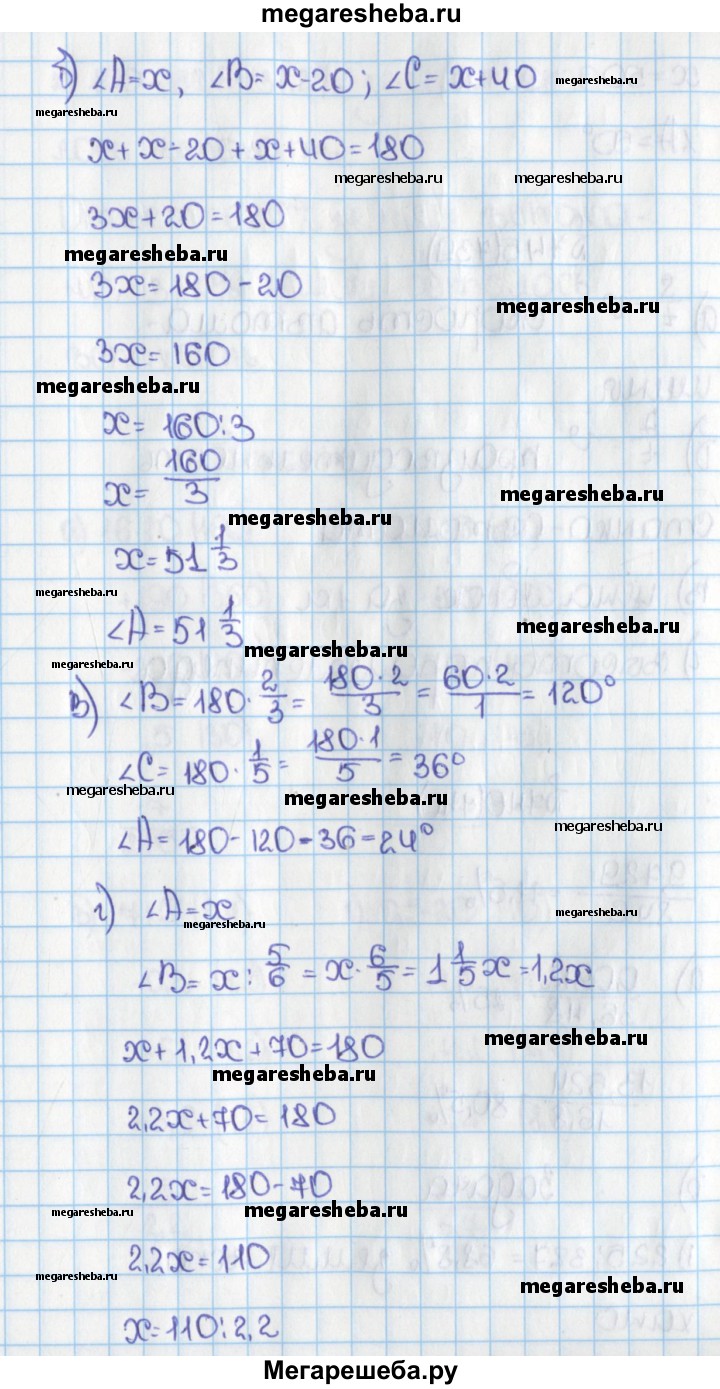 megaresheba.ru
б) ∠A=x, ∠B= x-20; ∠C= x+40
megaresheba.ru
megaresheba.ru
x+x-20+x+40=180
megaresheba.ru
megaresheba.ru
3x+20=180
megaresheba.ru
3x=180-20
megaresheba.ru
3x=160
megaresheba.ru
x= 160:3
x= 160/3
megaresheba.ru
megaresheba.ru
x=51 1/3
megaresheba.ru
∠A=51 1/3
megaresheba.ru
megaresheba.ru
megaresheba.ru
в) ∠B=180· 2/3 = 180·2/3 = 60·2/1 = 120°
∠C= 180· 1/5 = 180·1/5 = 36°
megaresheba.ru
megaresheba.ru
∠A=180-120-36=24°
megaresheba.ru
г) ∠A=x
megaresheba.ru
megaresheba.ru
∠B= x: 5/6 = x· 6/5 = 1 1/5 x =1,2x
megaresheba.ru
x+1,2x+70=180
megaresheba.ru
megaresheba.ru
2,2x+70=180
2,2x=180-70
megaresheba.ru
megaresheba.ru
2,2x=110
megaresheba.ru
megaresheba.ru
x=110:2,2
Мегарешеба.ру